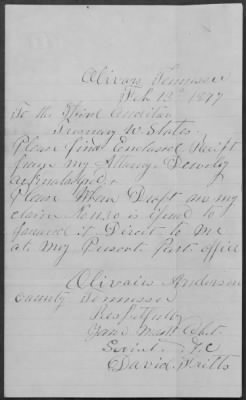 Olivars Tennessee
Feb 13th 1877
To the Third Auditor
Treasury U States
Please find Enclosed Receipt
from my Attorney Dewey
Please When Draft on my
claim No is Issued to
forward it Direct to me
at my Present Post office
Olivars Anderson
County Tennessee
Resptfuly
your most Obt
Servint
David Fritts